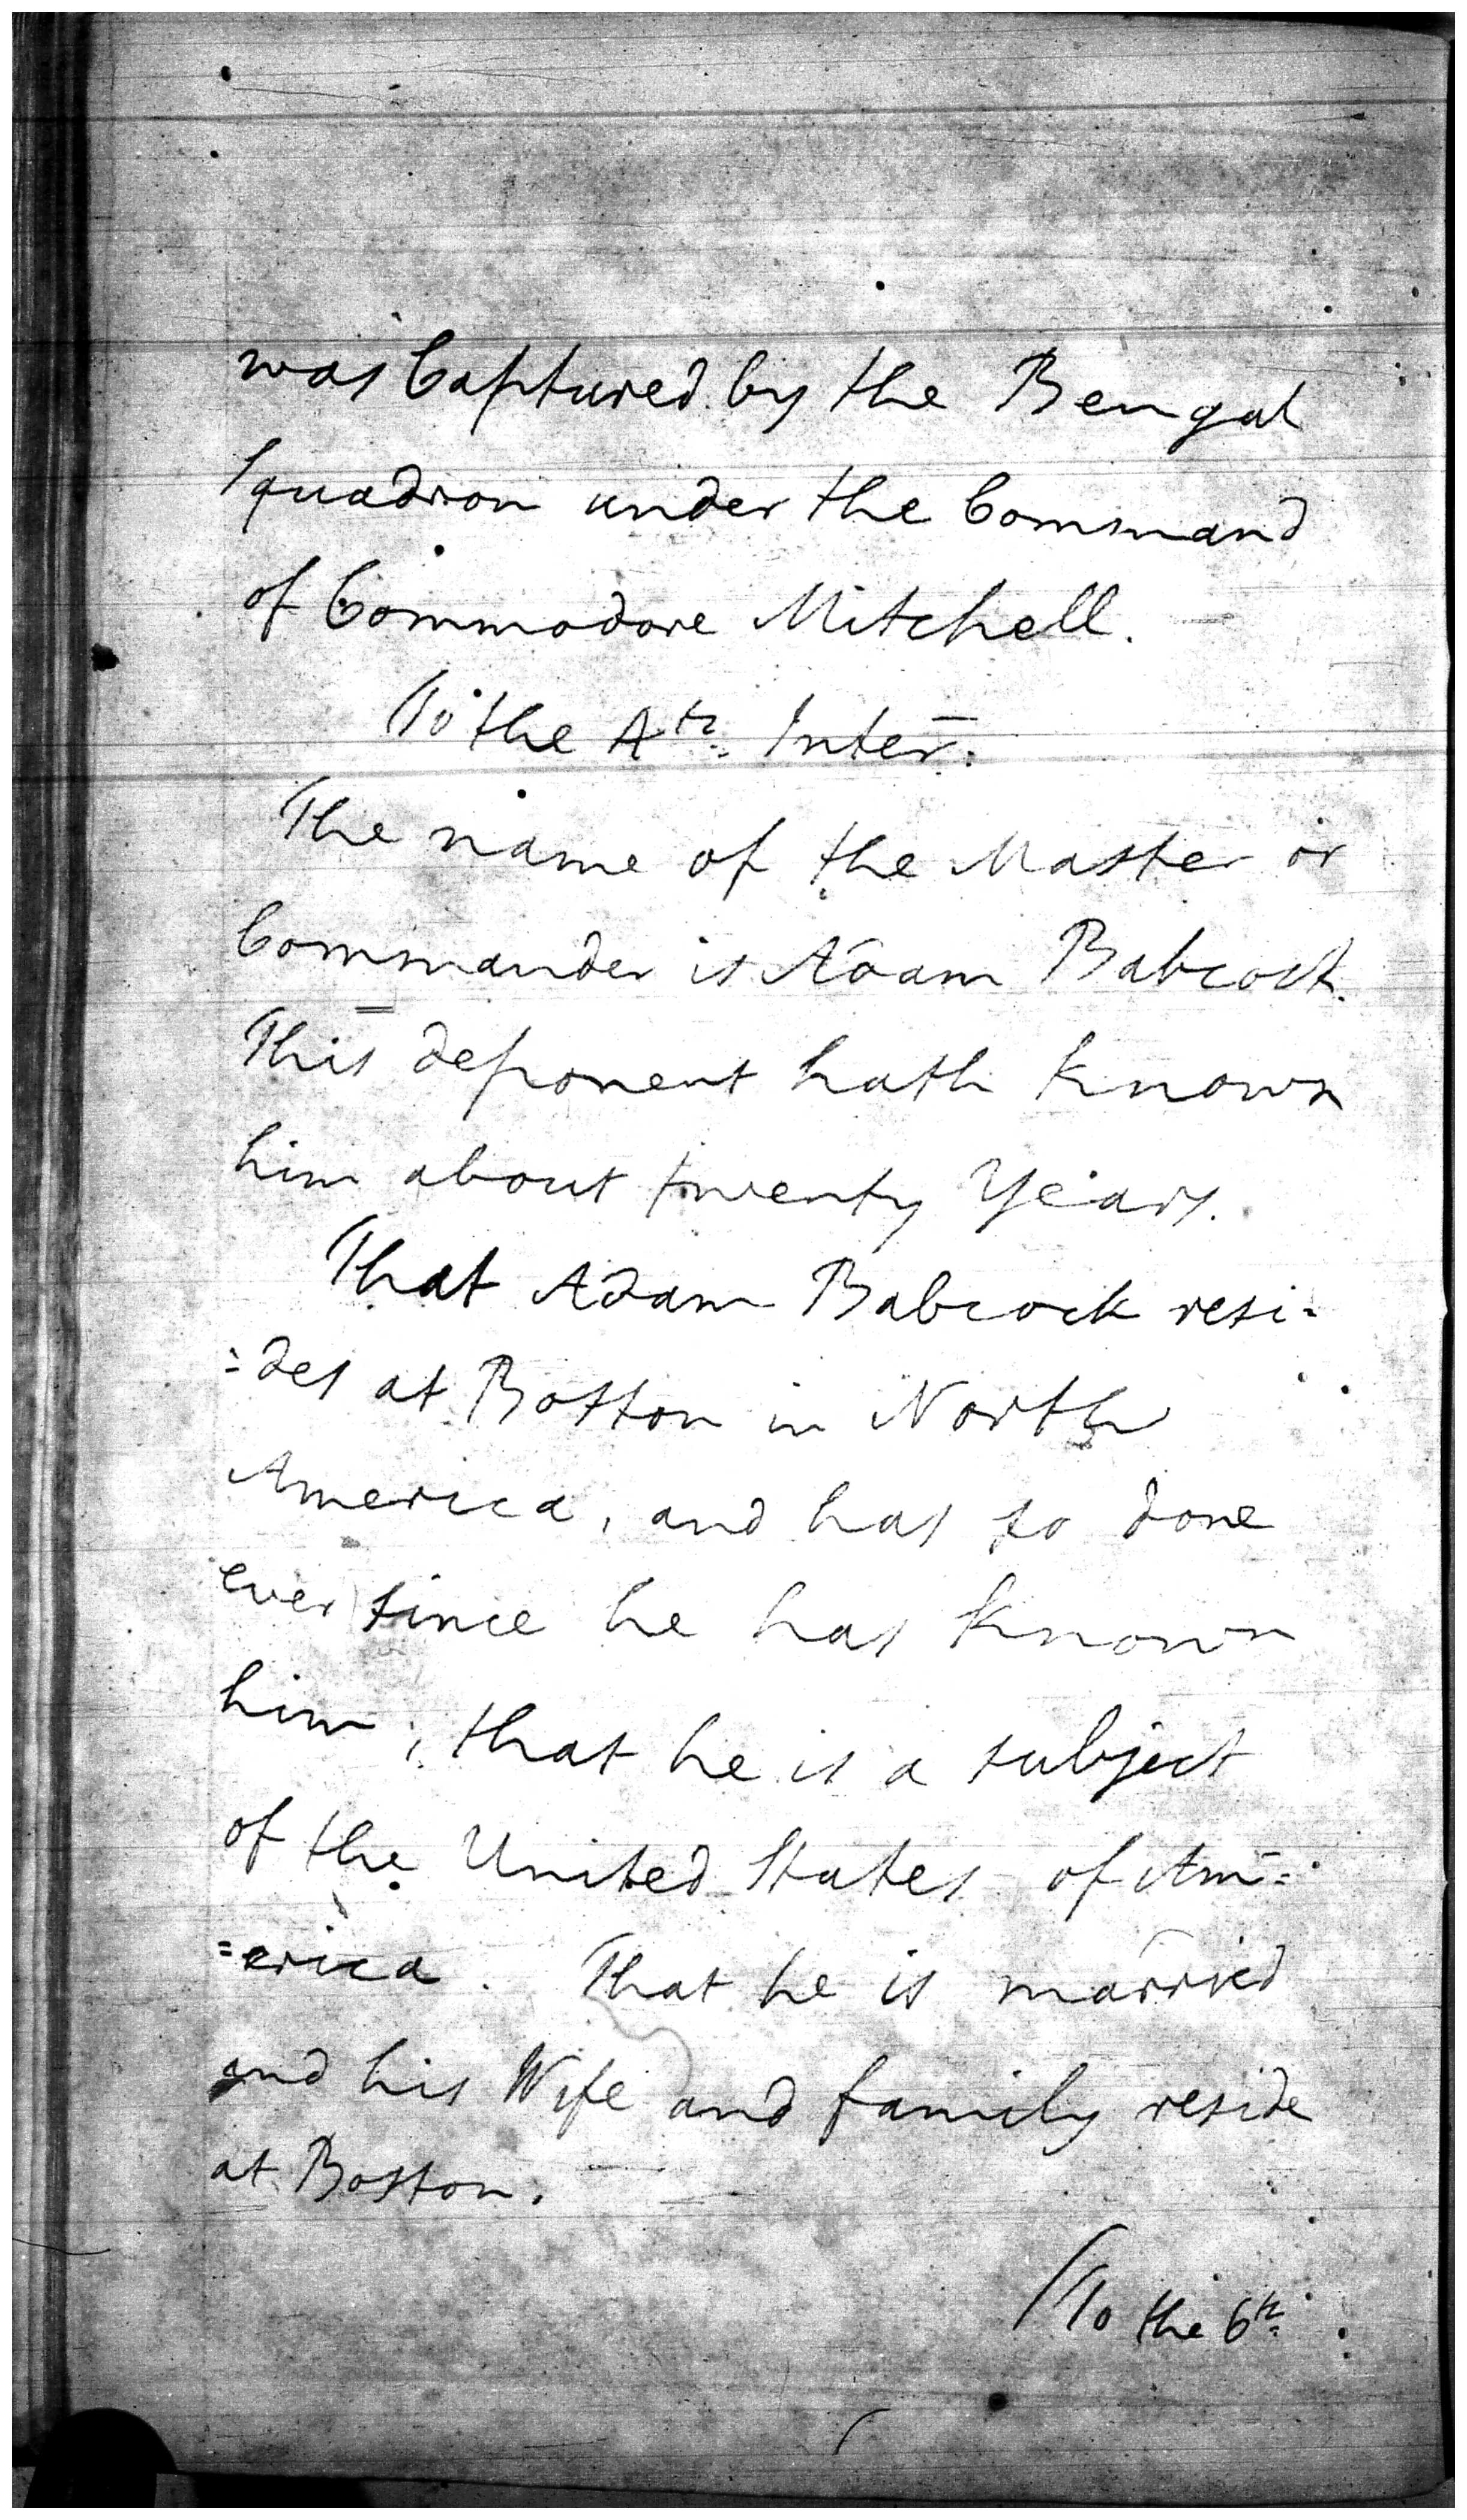 was Captured by the Bengal
Squadron under the Command
of Commodore Mitchell.
To the 4th. Inter:
The name of the Master or
Commander is Adam Babcock.
This deponent hath known
him about twenty Years.
That Adam Babcock resi=
=des at Boston in North
America, and has so done
ever since he has known
him; that he is a subject
of the United States of Am=
=erica. That he is married
and his Wife and family reside
at Boston.
/To the 6th.